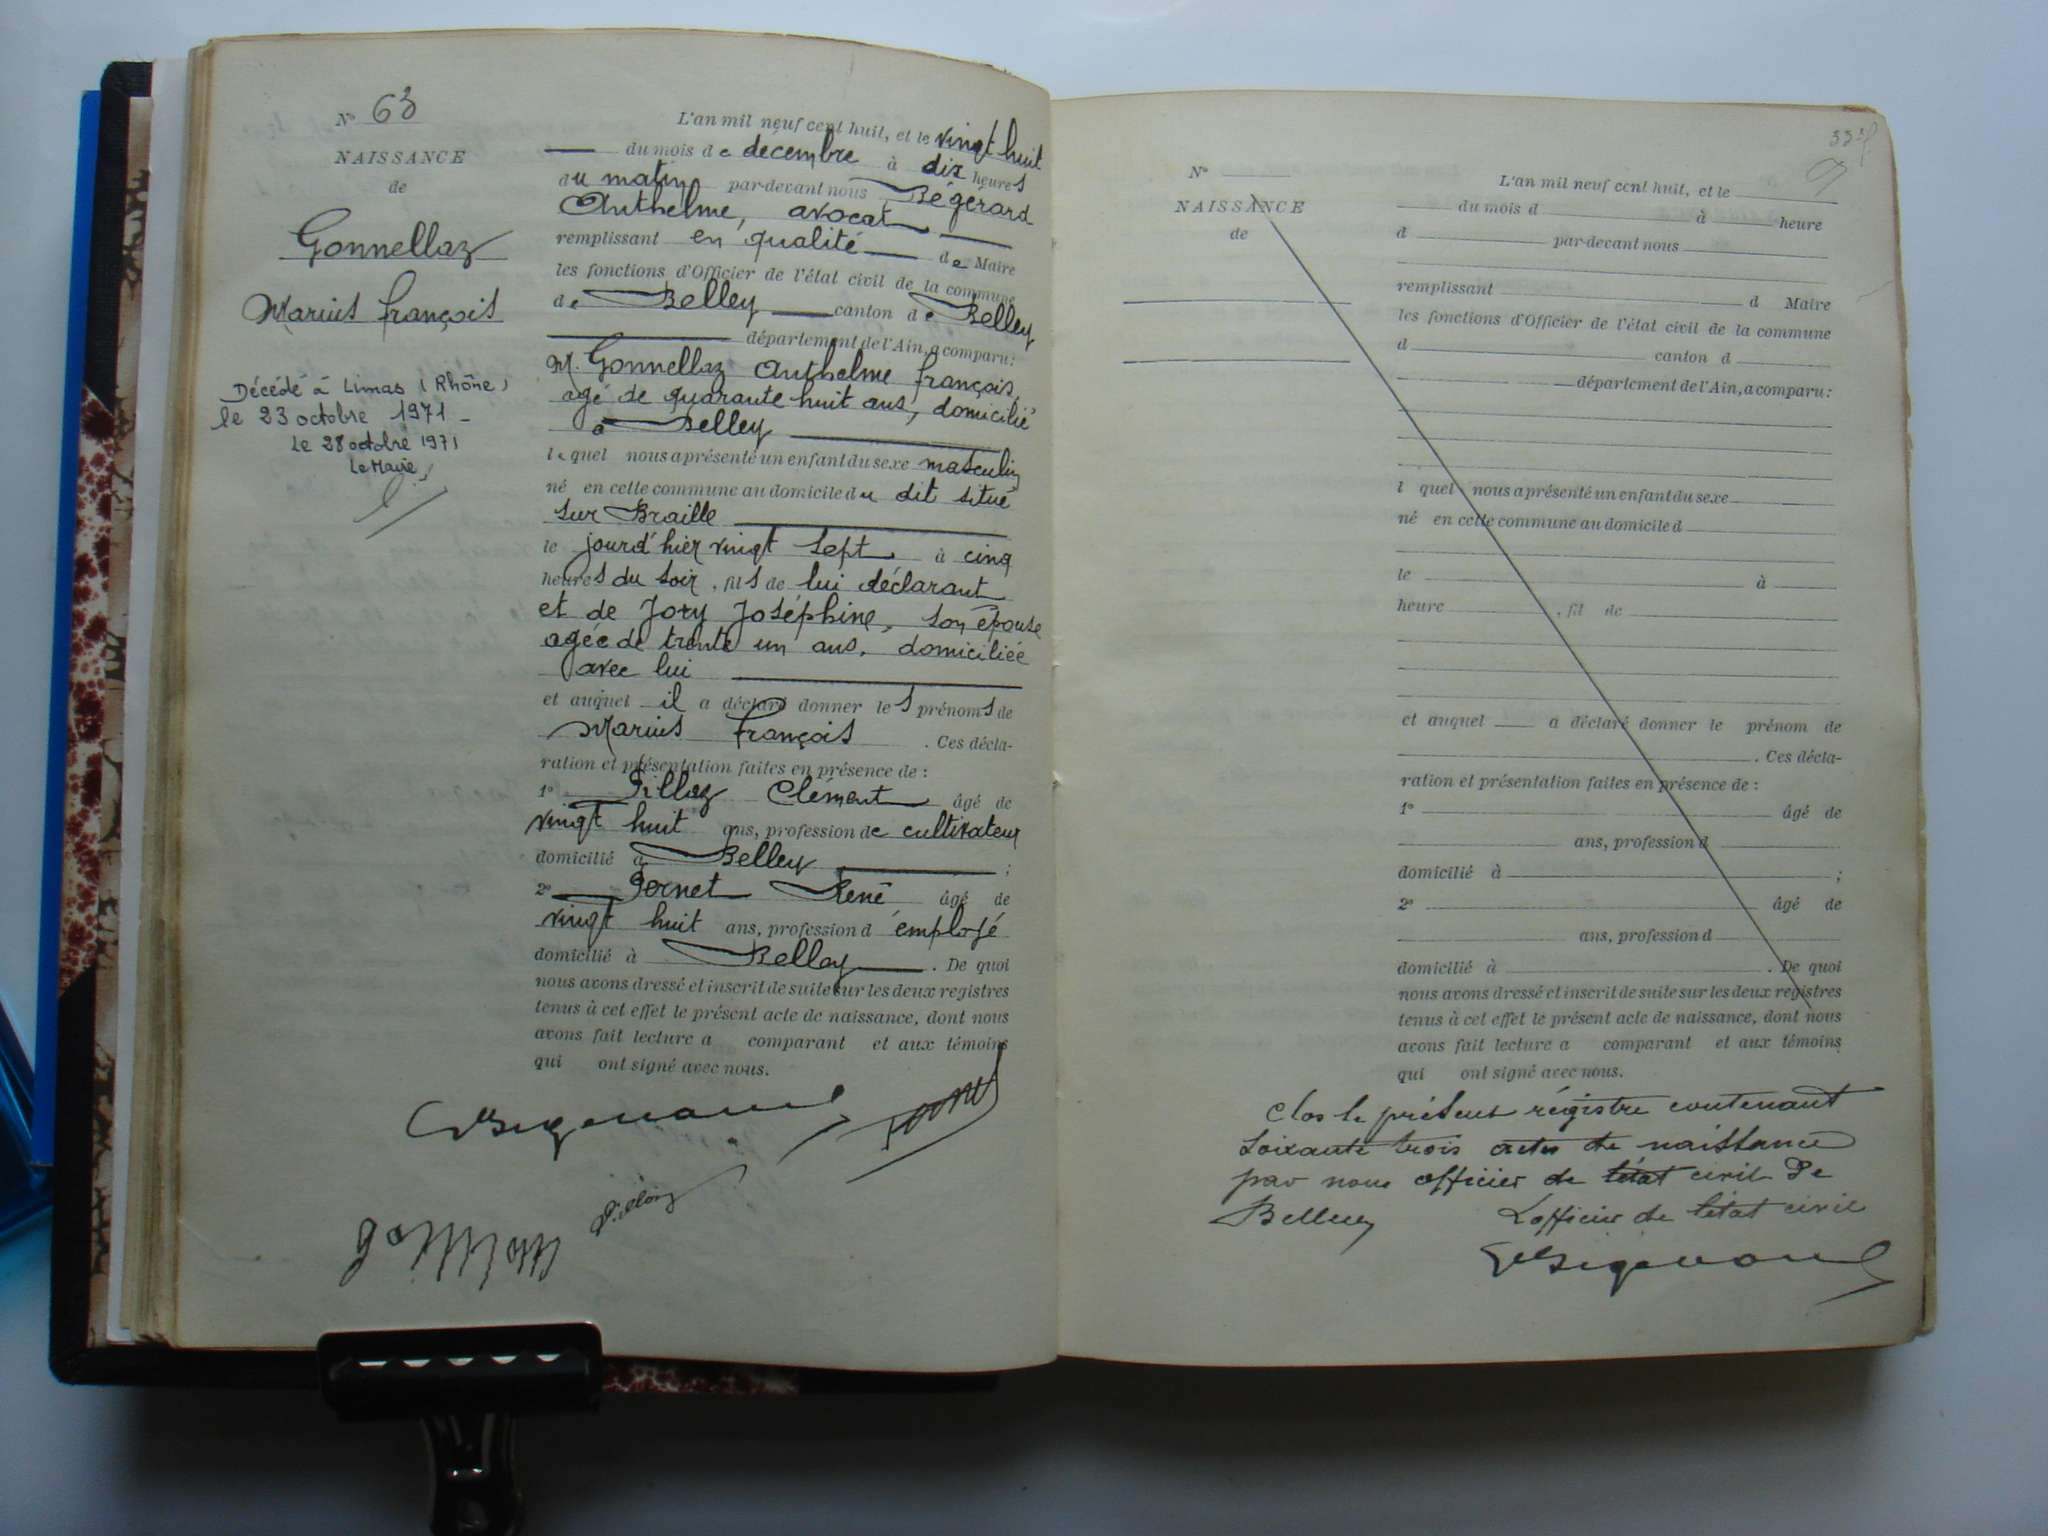 N° 63
NAISSANCE
de
Gonnellaz
Marius françois
Décédé à Limas (Rhône)
le 23 octobre 1971 -
Le 28 octobre 1971
Le Maire,
L'an mil neuf cent huit, et le vingt huit
du mois de décembre à dix heures
du matin par-devant nous Bégérard
Anthelme, avocat
remplissant en qualité de Maire
les fonctions d'Officier de l'état civil de la commune
de Belley canton de Belley
département de l'Ain, a comparu:
M. Gonnellaz Anthelme françois,
agé de quarante huit ans, domicilié
à Belley
lequel nous a présenté un enfant du sexe masculin
né en cette commune au domicile du dit situé
sur Braille
le jourd'hier vingt sept à cinq
heures du soir, fils de lui déclarant
et de Jory Joséphine, son épouse
agée de trente un ans, domiciliée
avec lui
et auquel il a déclaré donner les prénoms de
Marius françois. Ces décla-
ration et présentation faites en présence de :
1° Pillaz Clément âgé de
vingt huit ans, profession de cultivateur
domicilié à Belley ;
2° Pornet René âgé de
vingt huit ans, profession d'employé
domicilié à Belley. De quoi
nous avons dressé et inscrit de suite sur les deux registres
tenus à cet effet le présent acte de naissance, dont nous
avons fait lecture a comparant et aux témoins
qui ont signé avec nous.
N°
NAISSANCE
de
L'an mil neuf cent huit, et le
du mois d à heure
d par-devant nous
remplissant d Maire
les fonctions d'Officier de l'état civil de la commune
d canton d
département de l'Ain, a comparu:
l quel nous a présenté un enfant du sexe
né en cette commune au domicile d
le à
heure , fil de
et auquel a déclaré donner le prénom de
. Ces décla-
ration et présentation faites en présence de :
1° âgé de
ans, profession d
domicilié à ;
2° âgé de
ans, profession d
domicilié à . De quoi
nous avons dressé et inscrit de suite sur les deux registres
tenus à cet effet le présent acte de naissance, dont nous
avons fait lecture a comparant et aux témoins
qui ont signé avec nous.
Clos le présent régistre contenant
soixante trois actes de naissance
par nous officier de l'état civil de
Belley L'officier de l'état civil